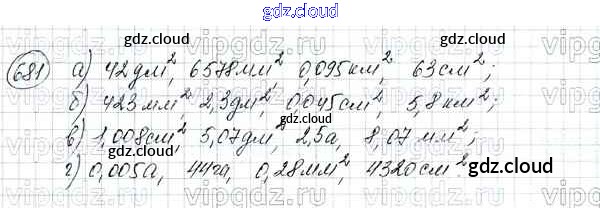 gdz.cloud
gdz.cloud gdz.cloud
681 а) 42дм², 6578мм², 0,095км², 63см²;
б) 423мм², 2,3дм², 0,045см², 5,8км²;
в) 1,008см², 5,07дм², 2,5а, 8,07мм²;
г) 0,005а, 44га, 0,28мм², 4320см².
gdz.cloud gdz.cloud
gdz.cloud